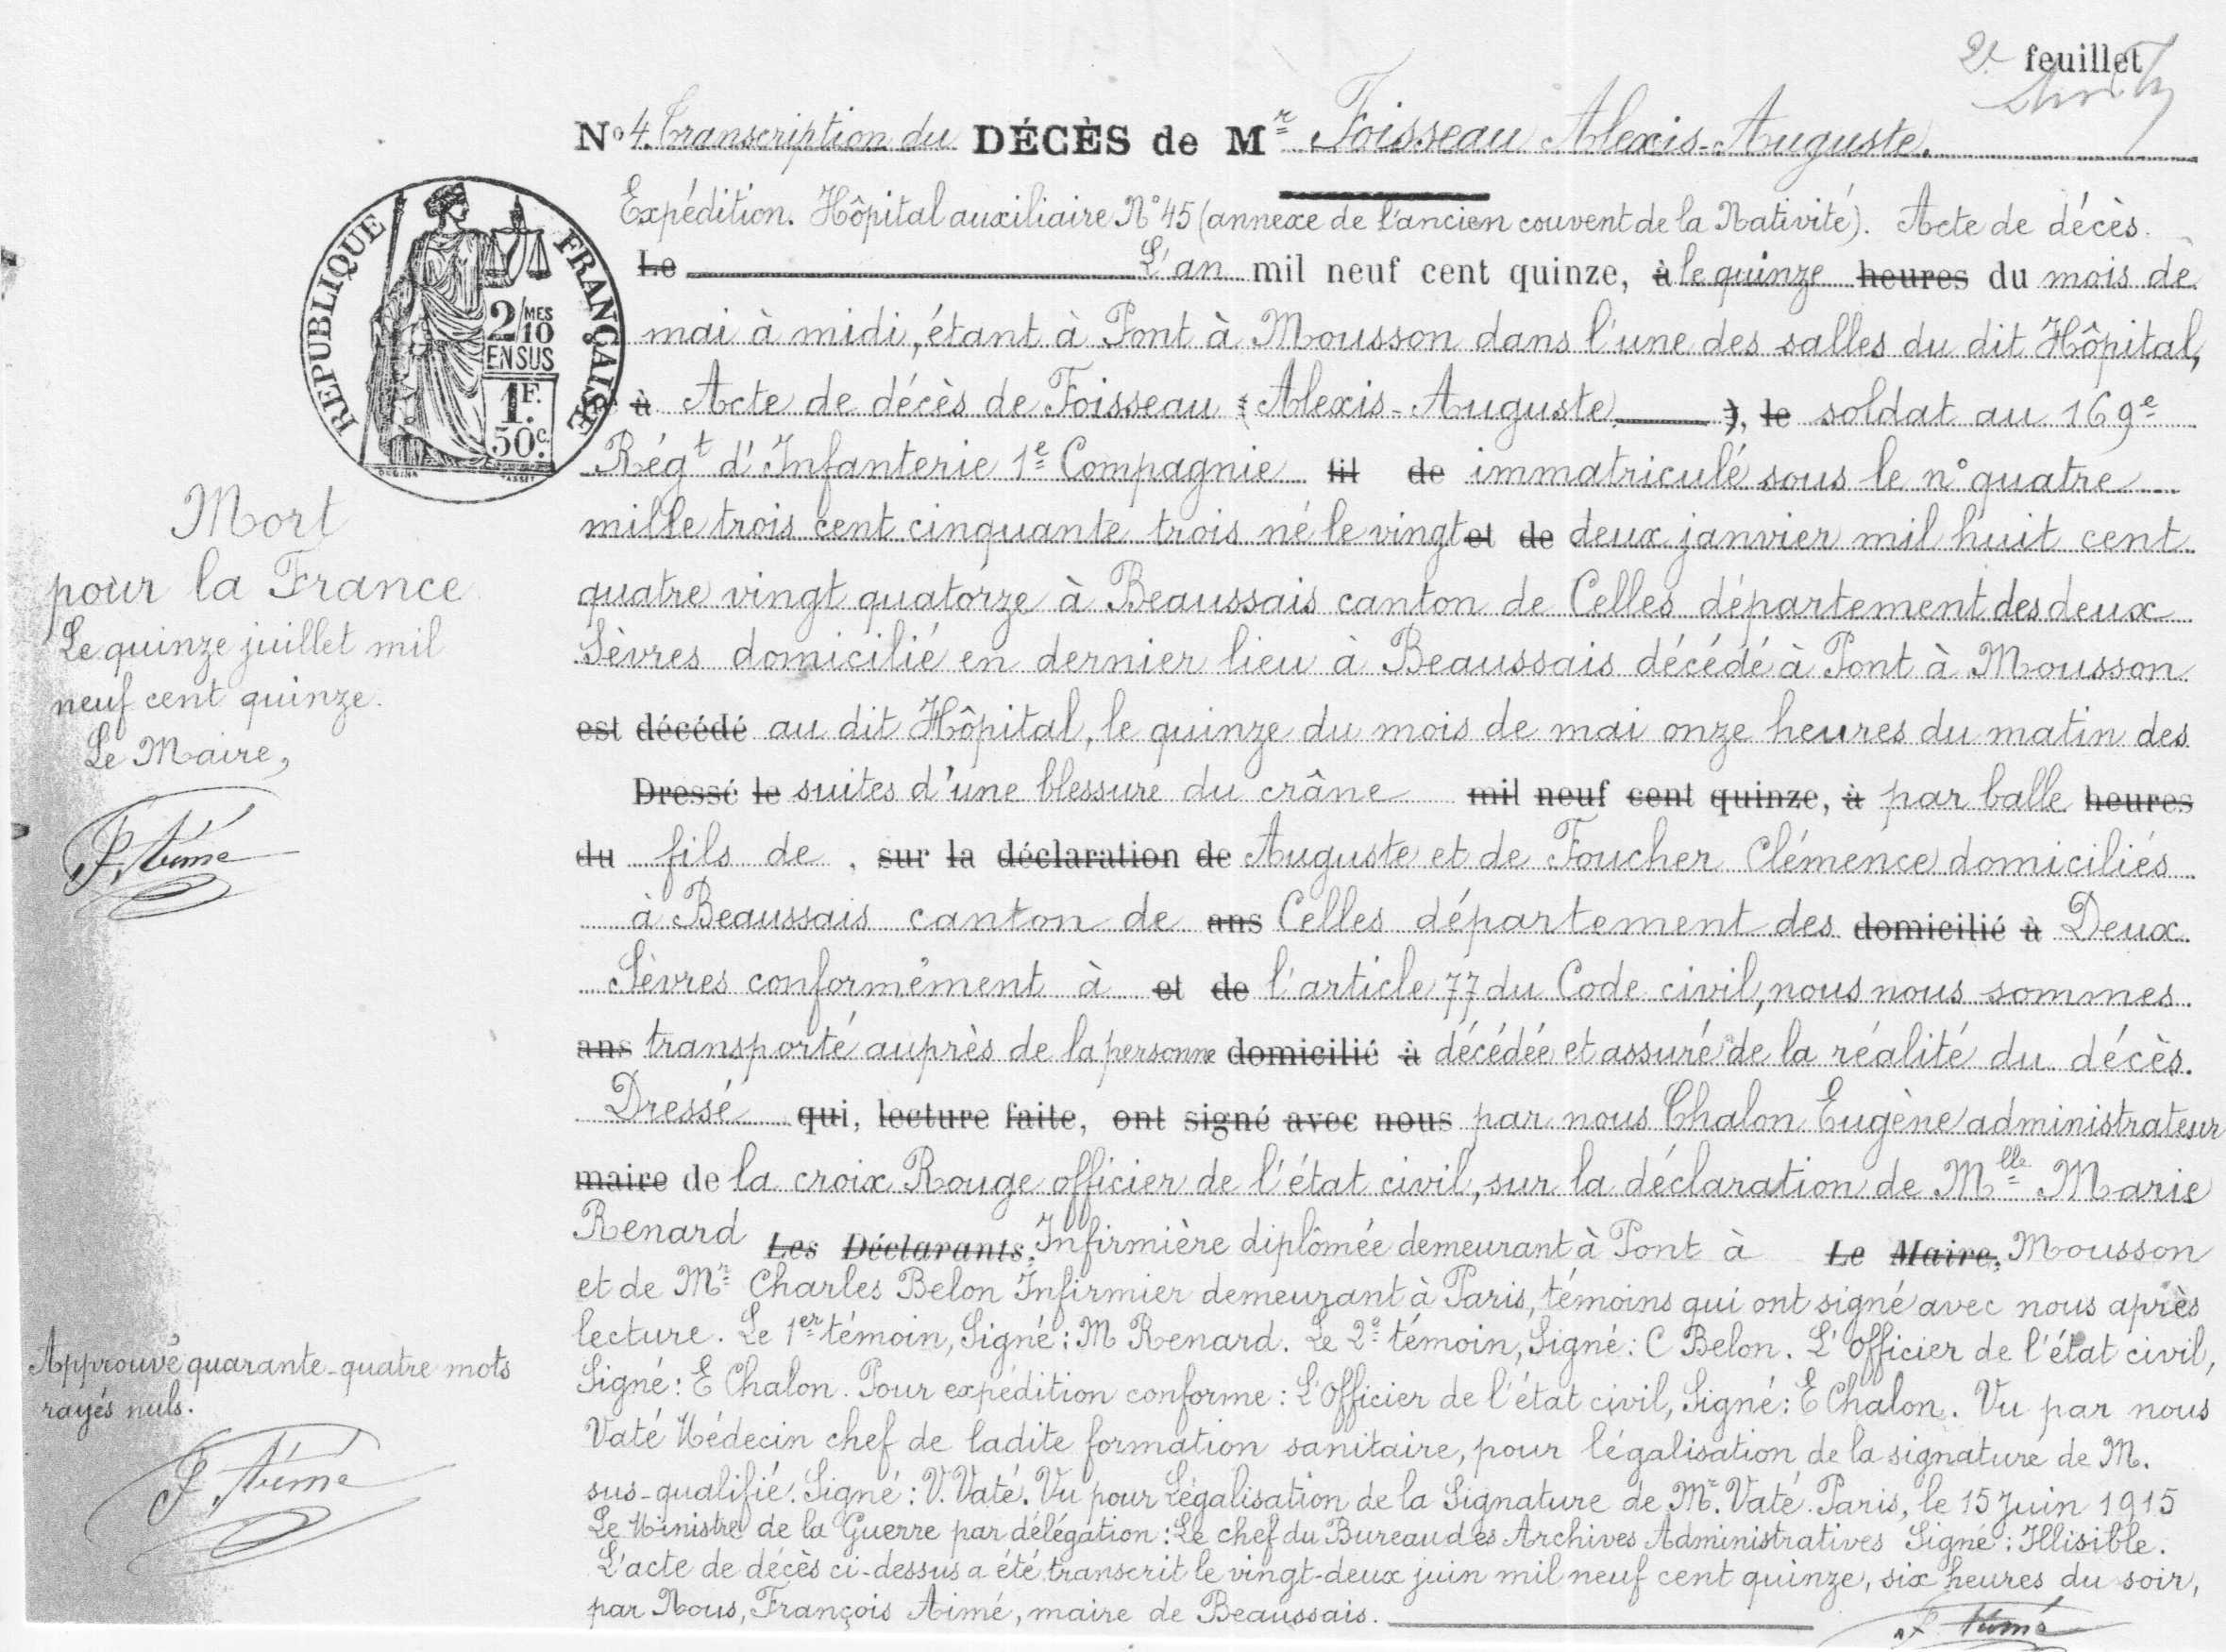 2e feuillet
No 4. Transcription du DÉCÈS de Mr Foisseau Alexis-Auguste.
Expédition. Hôpital auxiliaire No 45 (annexe de l'ancien couvent de la Nativité). Acte de décès.
Le L'an mil neuf cent quinze, à le quinze heures du mois de
mai à midi, étant à Pont à Mousson dans l'une des salles du dit Hôpital,
à Acte de décès de Foisseau (Alexis-Auguste), le soldat au 169e
Régt d'Infanterie 1e Compagnie fil de immatriculé sous le n° quatre
mille trois cent cinquante trois né le vingt et de deux janvier mil huit cent
quatre vingt quatorze à Beaussais canton de Celles département des deux
Sèvres domicilié en dernier lieu à Beaussais décédé à Pont à Mousson
est décédé au dit Hôpital, le quinze du mois de mai onze heures du matin des
Dressé le suites d'une blessure du crâne mil neuf cent quinze, à par balle heures
du fils de , sur la déclaration de Auguste et de Foucher Clémence domiciliés
à Beaussais canton de ans Celles département des domicilié à Deux
Sèvres conformément à et de l'article 77 du Code civil, nous nous sommes
ans transporté auprès de la personne domicilié à décédée et assuré de la réalité du décès.
Dressé qui, lecture faite, ont signé avec nous par nous Chalon Eugène administrateur
maire de la croix Rouge officier de l'état civil, sur la déclaration de Mlle Marie
Renard Les Déclarants, Infirmière diplômée demeurant à Pont à Le Maire, Mousson
et de Mr Charles Belon Infirmier demeurant à Paris, témoins qui ont signé avec nous après
lecture. Le 1er témoin, Signé: M Renard. Le 2e témoin, Signé: C Belon. L'officier de l'état civil,
Signé: E Chalon. Pour expédition conforme: L'Officier de l'état civil, Signé: E Chalon. Vu par nous
Vaté Médecin chef de ladite formation sanitaire, pour légalisation de la signature de M.
sus-qualifié. Signé: V. Vaté. Vu pour Légalisation de la Signature de Mr. Vaté. Paris, le 15 Juin 1915
Le Ministre de la Guerre par délégation: Le chef du Bureau des Archives Administratives Signé: Illisible.
L'acte de décès ci-dessus a été transcrit le vingt-deux juin mil neuf cent quinze, six heures du soir,
par Nous, François Aimé, maire de Beaussais.
F. Aimé
RÉPUBLIQUE FRANÇAISE
2/MES
10
EN SUS
1F.
50c.
Mort
pour la France
Le quinze juillet mil
neuf cent quinze.
Le Maire,
F. Aimé
Approuvé quarante-quatre mots
rayés nuls.
F. Aimé